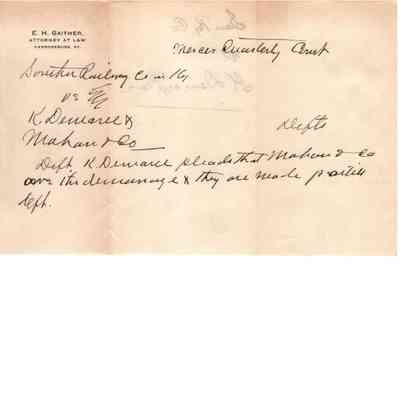 E. H. GAITHER,
ATTORNEY AT LAW
HARRODSBURG, KY.
Mercer Quarterly Court
Souther Railway Co in Ky
vs
K Demaree &
Mahan & Co Defts
Deft K Demaree pleads that Mahan & Co
owe this demarrage & they are made parties
deft.